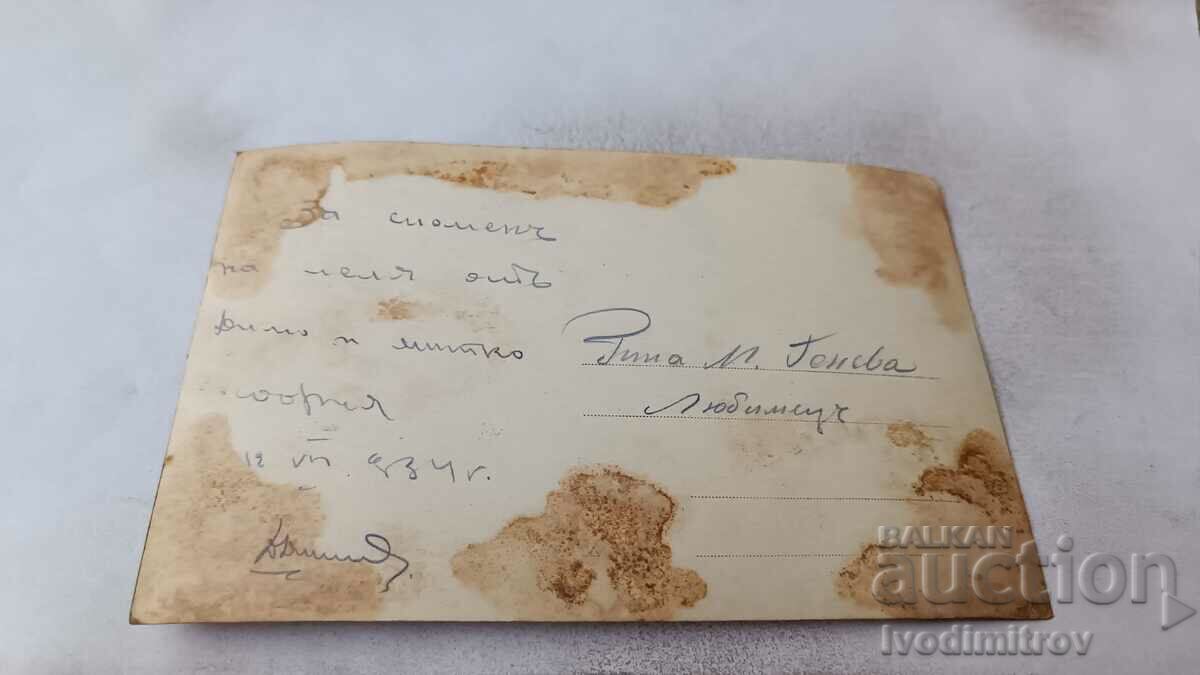 За споменъ
на леля отъ
Димо и митко
София
12 VII 934 г.
Рина М. Генева
Любимецъ
BALKAN
auction
Ivodimitrov